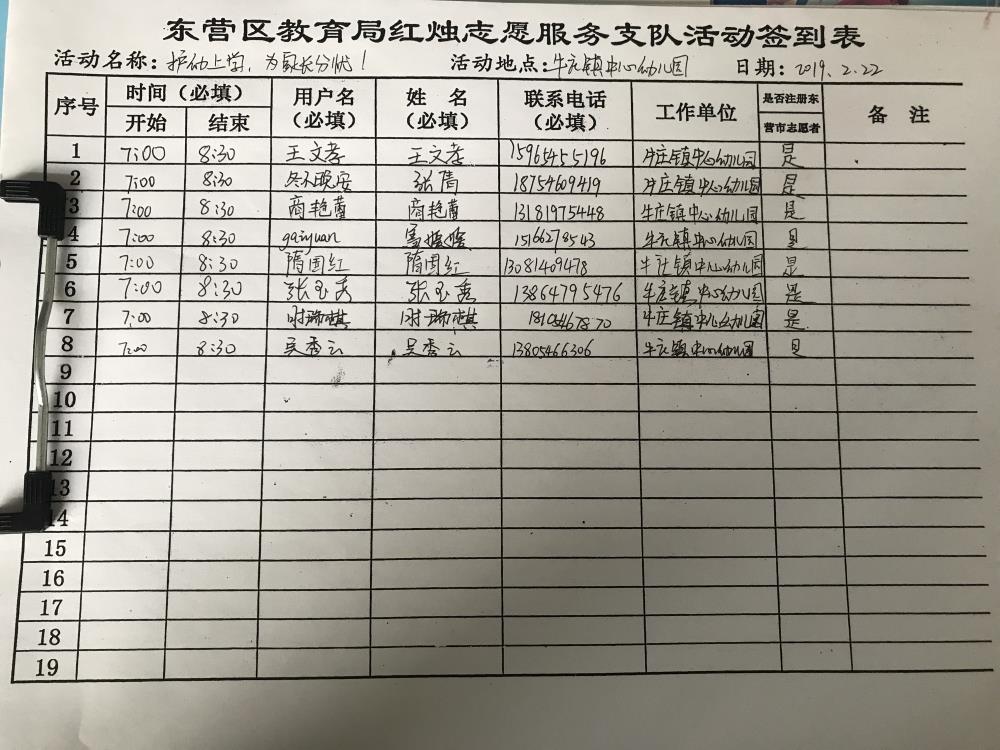 东营区教育局红烛志愿服务支队活动签到表
活动名称：护幼上学，为家长分忧！ 活动地点：牛庄镇中心幼儿园 日期：2019.2.22
序号 时间（必填） 用户名（必填） 姓名（必填） 联系电话（必填） 工作单位 是否注册东营市志愿者 备注
开始 结束
1 7:00 8:30 王文孝 王文孝 15965455196 牛庄镇中心幼儿园 是
2 7:00 8:30 冬不晚安 张倩 18754609419 牛庄镇中心幼儿园 是
3 7:00 8:30 商艳菌 商艳菌 13181975448 牛庄镇中心幼儿园 是
4 7:00 8:30 gaiyuan 15166278543 牛庄镇中心幼儿园 是
5 7:00 8:30 隋国红 隋国红 13081409478 牛庄镇中心幼儿园 是
6 7:00 8:30 张玉秀 张玉秀 13864795476 牛庄镇中心幼儿园 是
7 7:00 8:30 牛庄镇中心幼儿园 是
8 7:00 8:30 吴秀云 吴秀云 13805466306 牛庄镇中心幼儿园 是
9
10
11
12
13
14
15
16
17
18
19